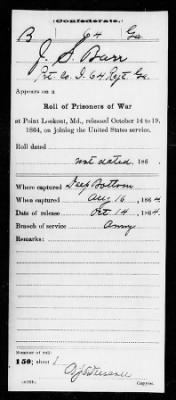 Confederate.
B 64 Ga
J. S. Barr
Pvt. Co. I, 64 Regt. Ga.
Appears on a
Roll of Prisoners of War
at Point Lookout, Md., released October 14 to 19,
1864, on joining the United States service.
Roll dated
not dated, 186 .
Where captured Deep Bottom
When captured Aug 16, 1864
Date of release Oct. 14, 1864.
Branch of service Army
Remarks:
Number of roll:
150; sheet 1
Copyist.